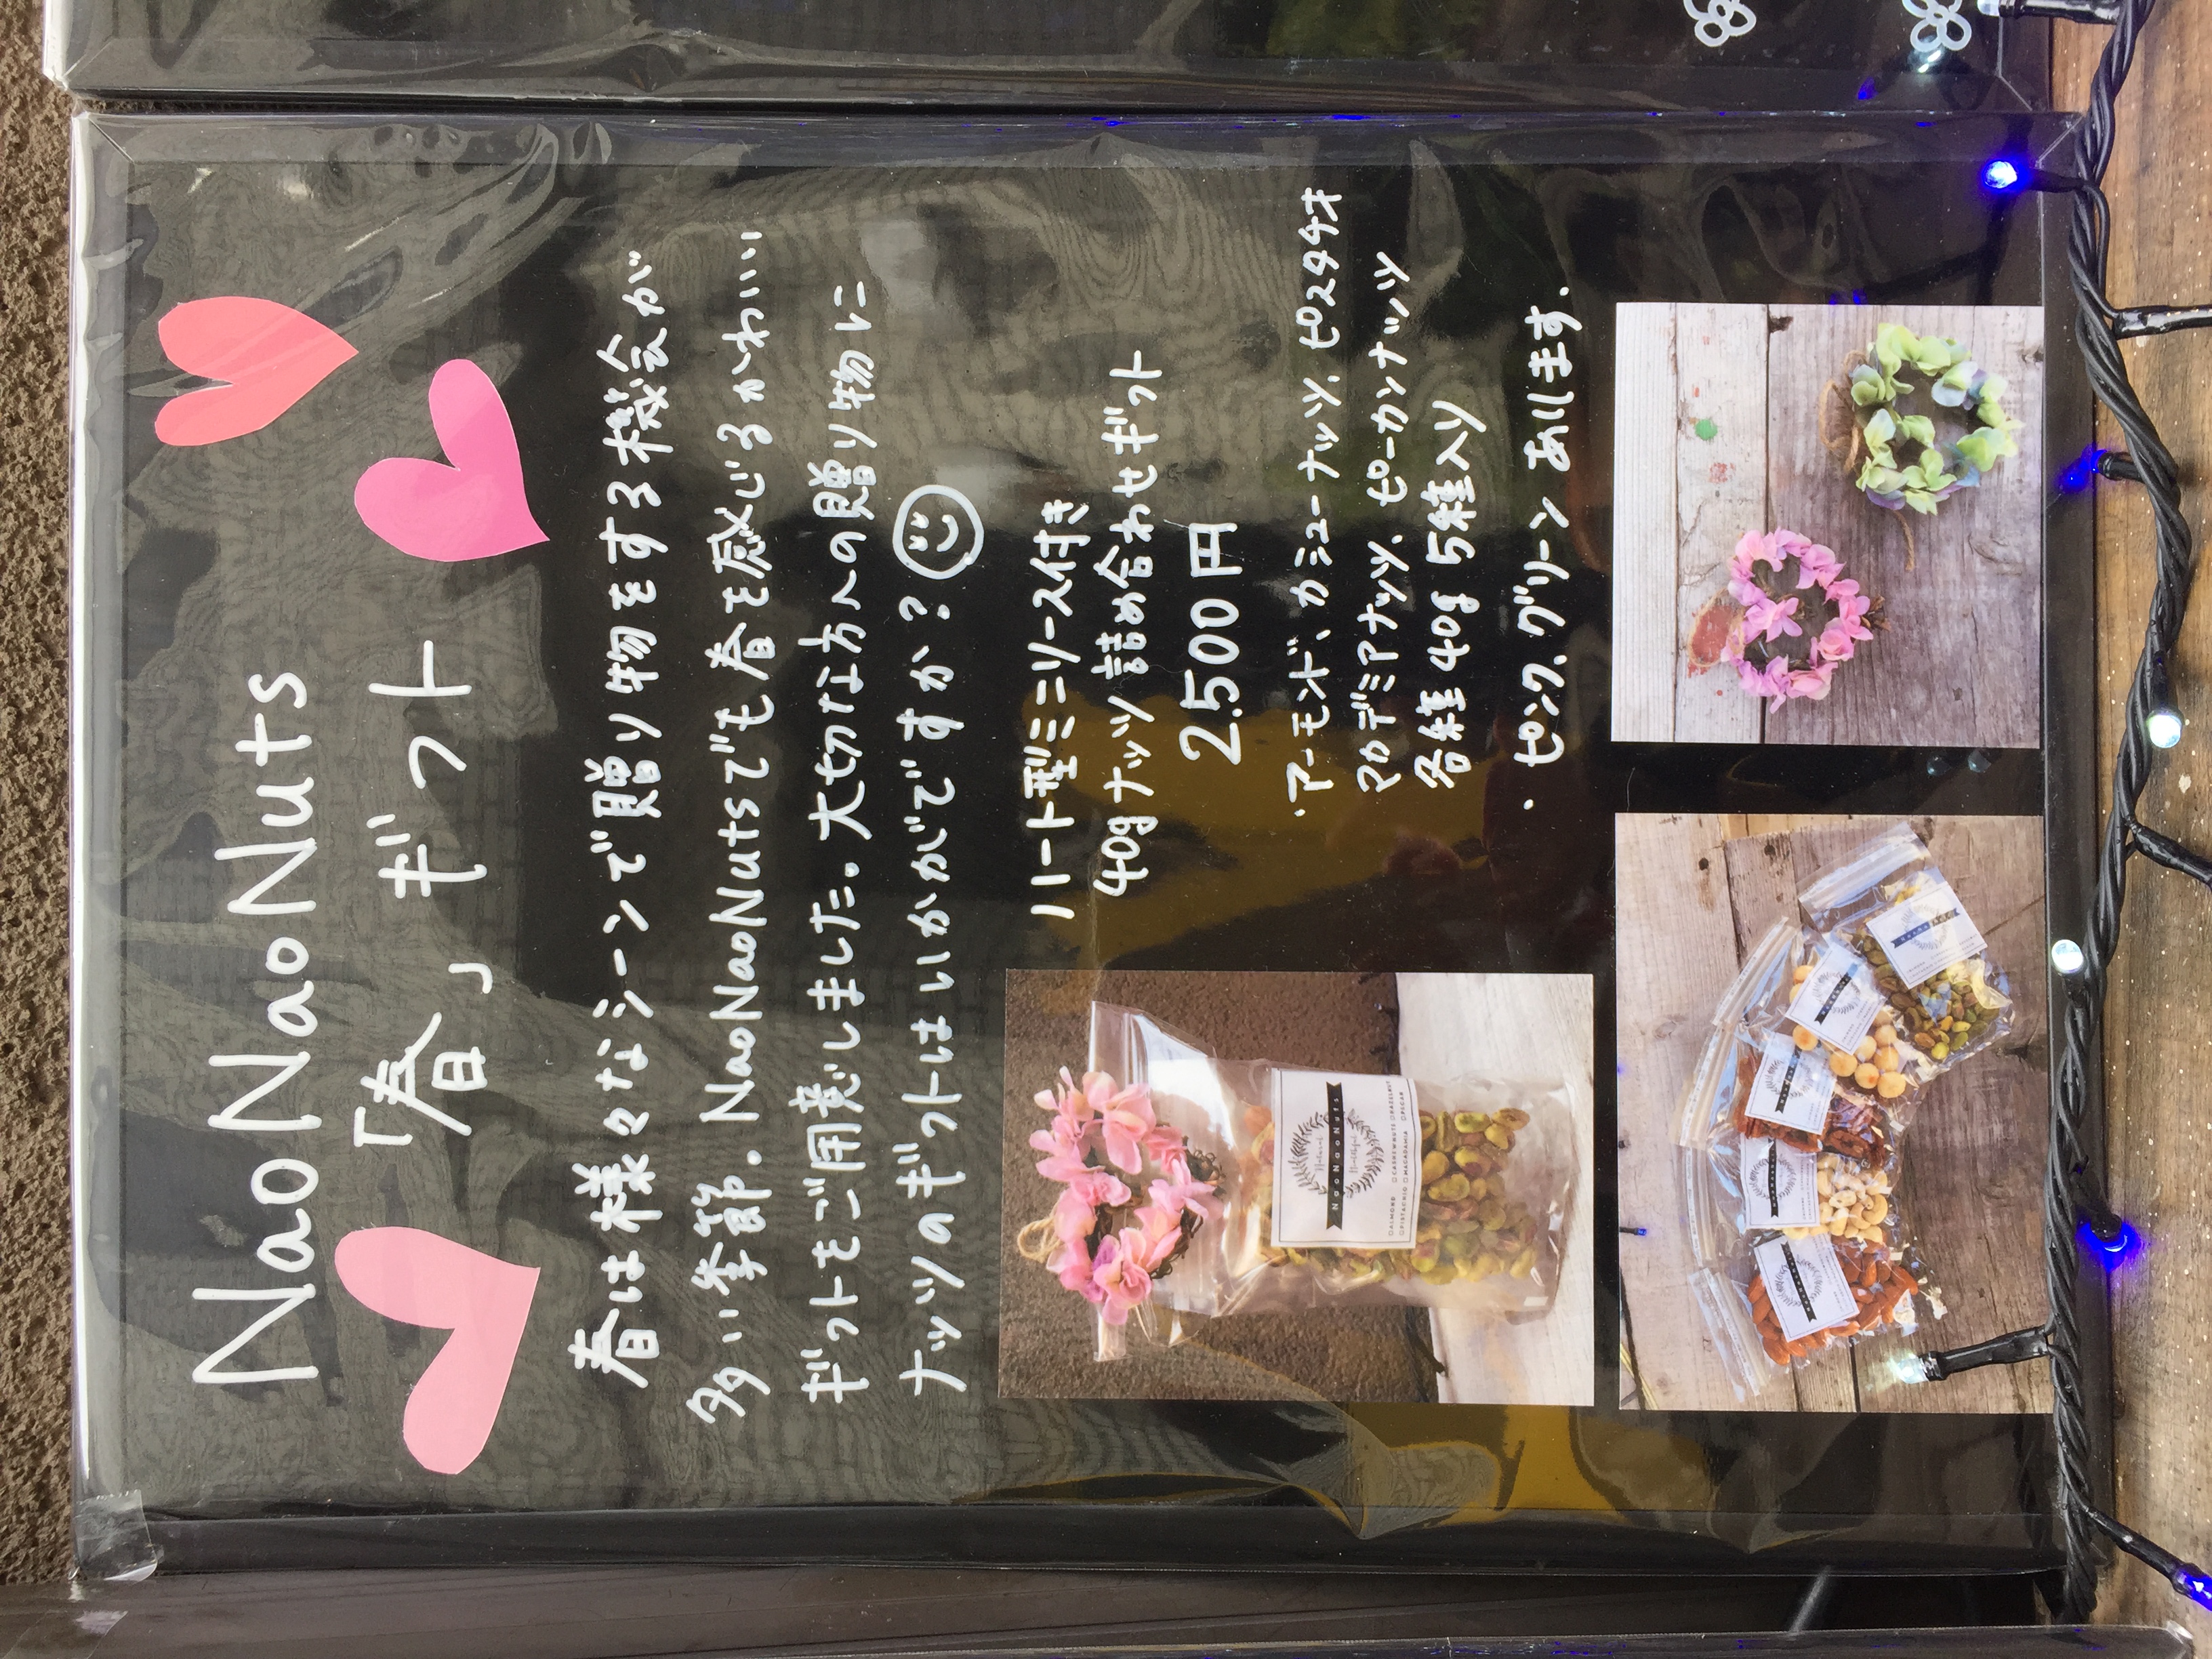 NaoNaoNuts
「春」ギフト
春は様々なシーンで贈り物をする機会が
多い季節。NaoNaoNutsでも春を感じるかわいい
ギフトをご用意しました。大切な方への贈り物に
ナッツのギフトはいかがですか?
ハート型ミニリース付き
40gナッツ詰め合わせギフト
2,500円
・アーモンド、カシューナッツ、ピスタチオ
マカデミアナッツ、ピーカンナッツ
各種40g 5種入り
・ピンク、グリーンあります。
Natural
Healthful
NaoNaoNuts
□ALMOND □CASHEWNUTS □HAZELNUT
□PISTACHIO □MACADAMIA □PECAN